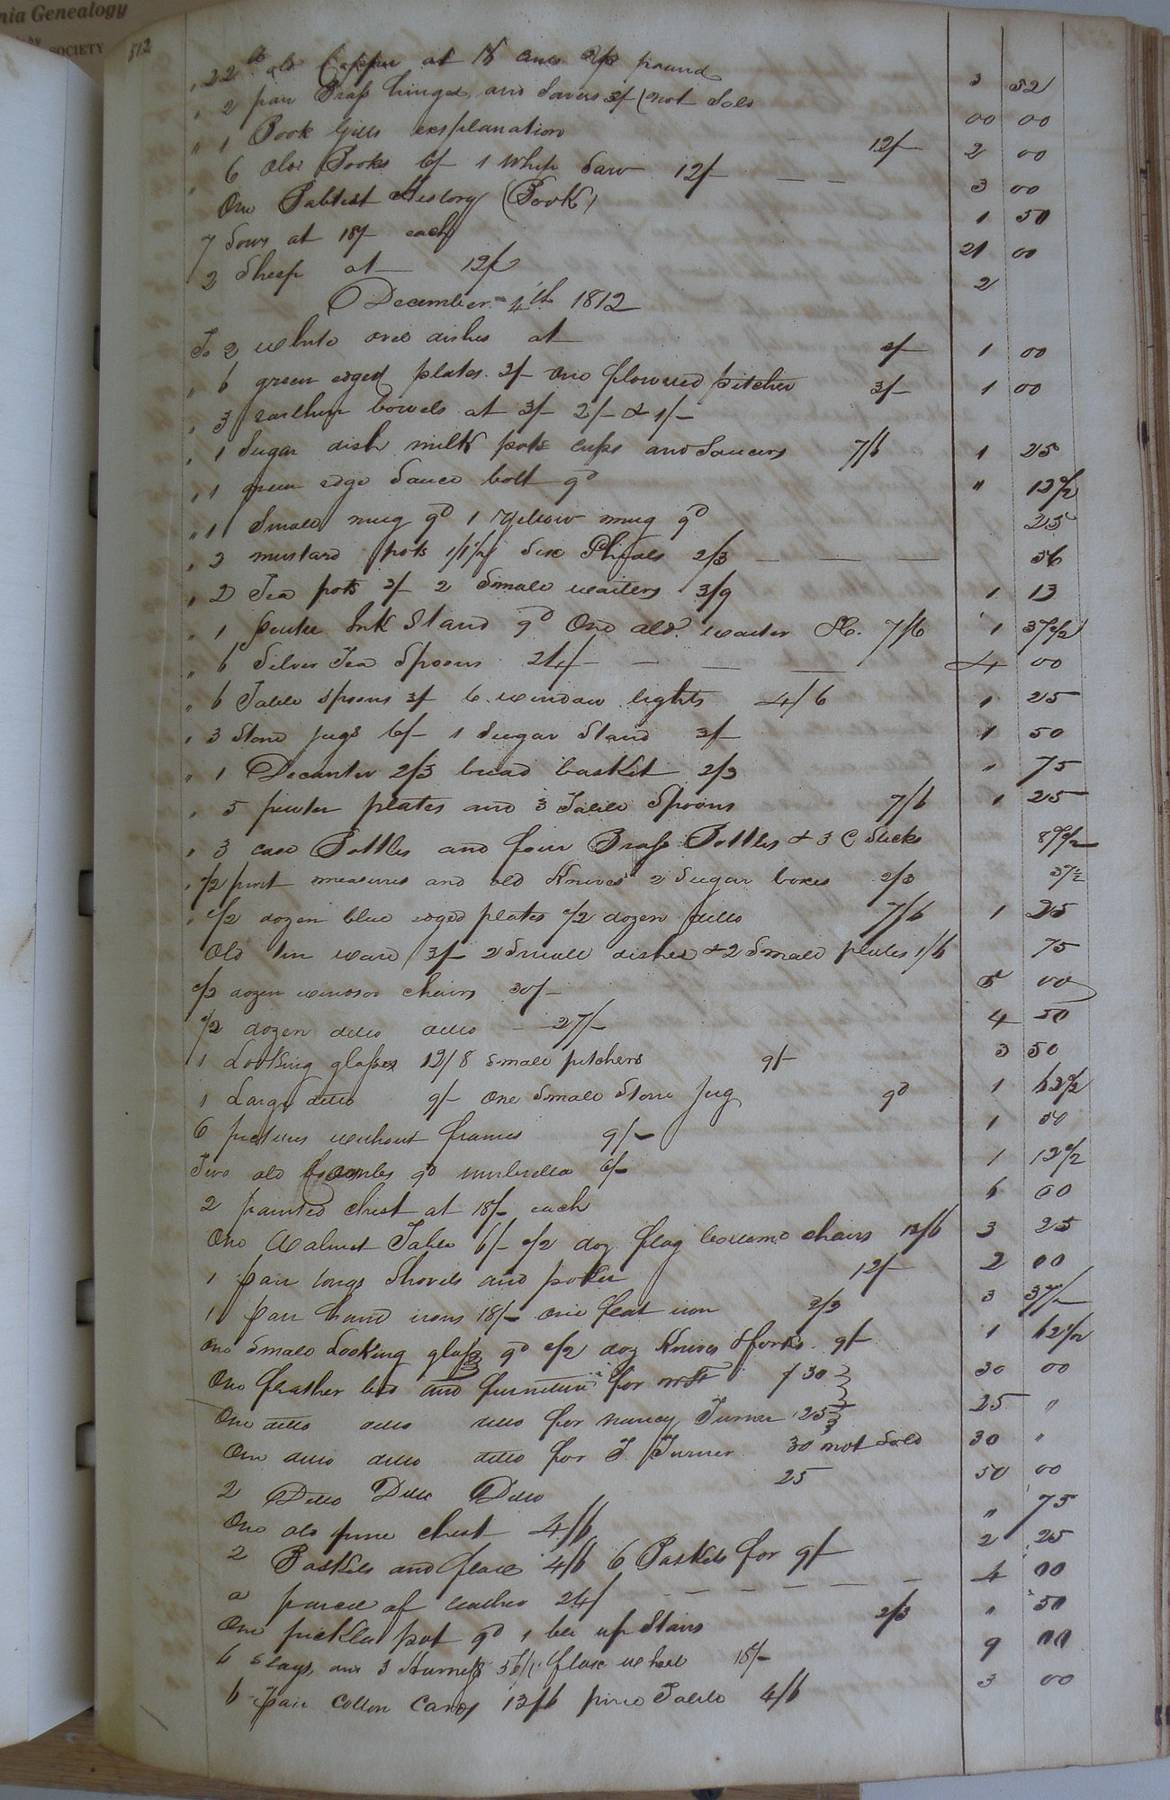 nia Genealogy
SOCIETY
512
" 22 lb old Copper at 16 cents pr pound 3 52
" 2 pair Brass hinges and Savers 3/ (not Sold 00 00
" 1 Book Gills explanation 12/- 2 00
" 6 old Books 6/ 1 Whip Saw 12/- 3 00
One Babtist History (Book) 1 50
7 Sows at 18/- each 21 00
2 Sheep at 12/- 2
December 4th 1812
To 2 white oval dishes at 1 00
" 6 green edged plates 3/- one flowered pitcher 3/- 1 00
" 3 earthen bowels at 3/- 2/- & 1/-
" 1 Sugar dish milk pots cups and Saucers 7/6 1 25
" 1 green edge Sauce bolt 9d " 12 1/2
" 1 Small mug 9d 1 yellow mug 9d 25
" 2 mustard pots 1/1 1/2 Six Phials 2/3 56
" 2 Tea pots 3/- 2 Small waiters 3/9 1 13
" 1 pewter Ink Stand 9d One old waiter &c. 7/6 1 37 1/2
" 6 Silver Tea Spoons 24/- 4 00
" 6 Table spoons 3/ 6 window lights 4/6 1 25
" 3 Stone Jugs 6/- 1 Sugar Stand 3/- 1 50
" 1 Decanter 2/3 bread basket 2/3 " 75
" 5 pewter plates and 3 Table Spoons 7/6 1 25
" 3 case Bottles and four Brass Bottles & 3 C Sticks 87 1/2
" 1/2 pint measures and old Knives 2 Sugar boxes 2/3 37 1/2
" 1/2 dozen blue edged plates 1/2 dozen ditto 7/6 1 25
Old tin ware 3/- 2 Small dishes & 2 Small plates 1/6 75
1/2 dozen windsor chairs 30/- 5 00
1/2 dozen ditto ditto 27/- 4 50
1 Looking glasses 12/ 8 small pitchers 9/- 3 50
1 Large ditto 9/- One Small Stone Jug 9d 1 62 1/2
6 pictures without frames 9/- 1 50
Two old 9d umbrella 6/- 1 12 1/2
2 painted chest at 18/- each 6 00
One Walnut Table 6/- 1/2 doz flag bottomd chairs 13/6 3 25
1 pair tongs Shovels and poker 12/- 2 00
1 pair hand irons 18/- one flat iron 2/3 3 37 1/2
One Small Looking glass 9d 1/2 doz Knives & forks 9/- 1 62 1/2
One feather bed and furniture for 30 30 00
One ditto ditto ditto for nancy Turner 25 25 "
One ditto ditto ditto for T Turner 30 not Sold 30 "
2 Ditto Ditto Ditto 25 50 00
One old pine chest 4/6 " 75
2 Baskets and flax 4/6 6 Baskets for 9/- 2 25
a parcel of leather 24/ 4 00
One pickle pot 9d 1 up Stairs 2/3 " 50
6 slays and 3 Harness 36/ flax wheel 18/- 9 00
6 pair Cotton Cards 13/6 pine Table 4/6 3 00